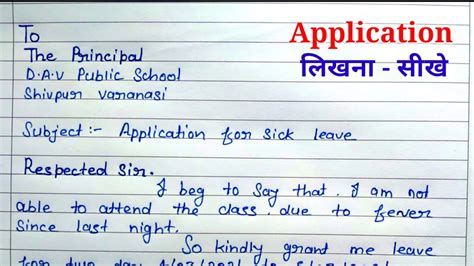 Application
लिखना - सीखे
To
The Principal
D.A.V Public School
Shivpur Varanasi
Subject :- Application for sick leave
Respected Sir.
I beg to say that. I am not
able to attend the class due to fever
since last night.
So kindly grant me leave